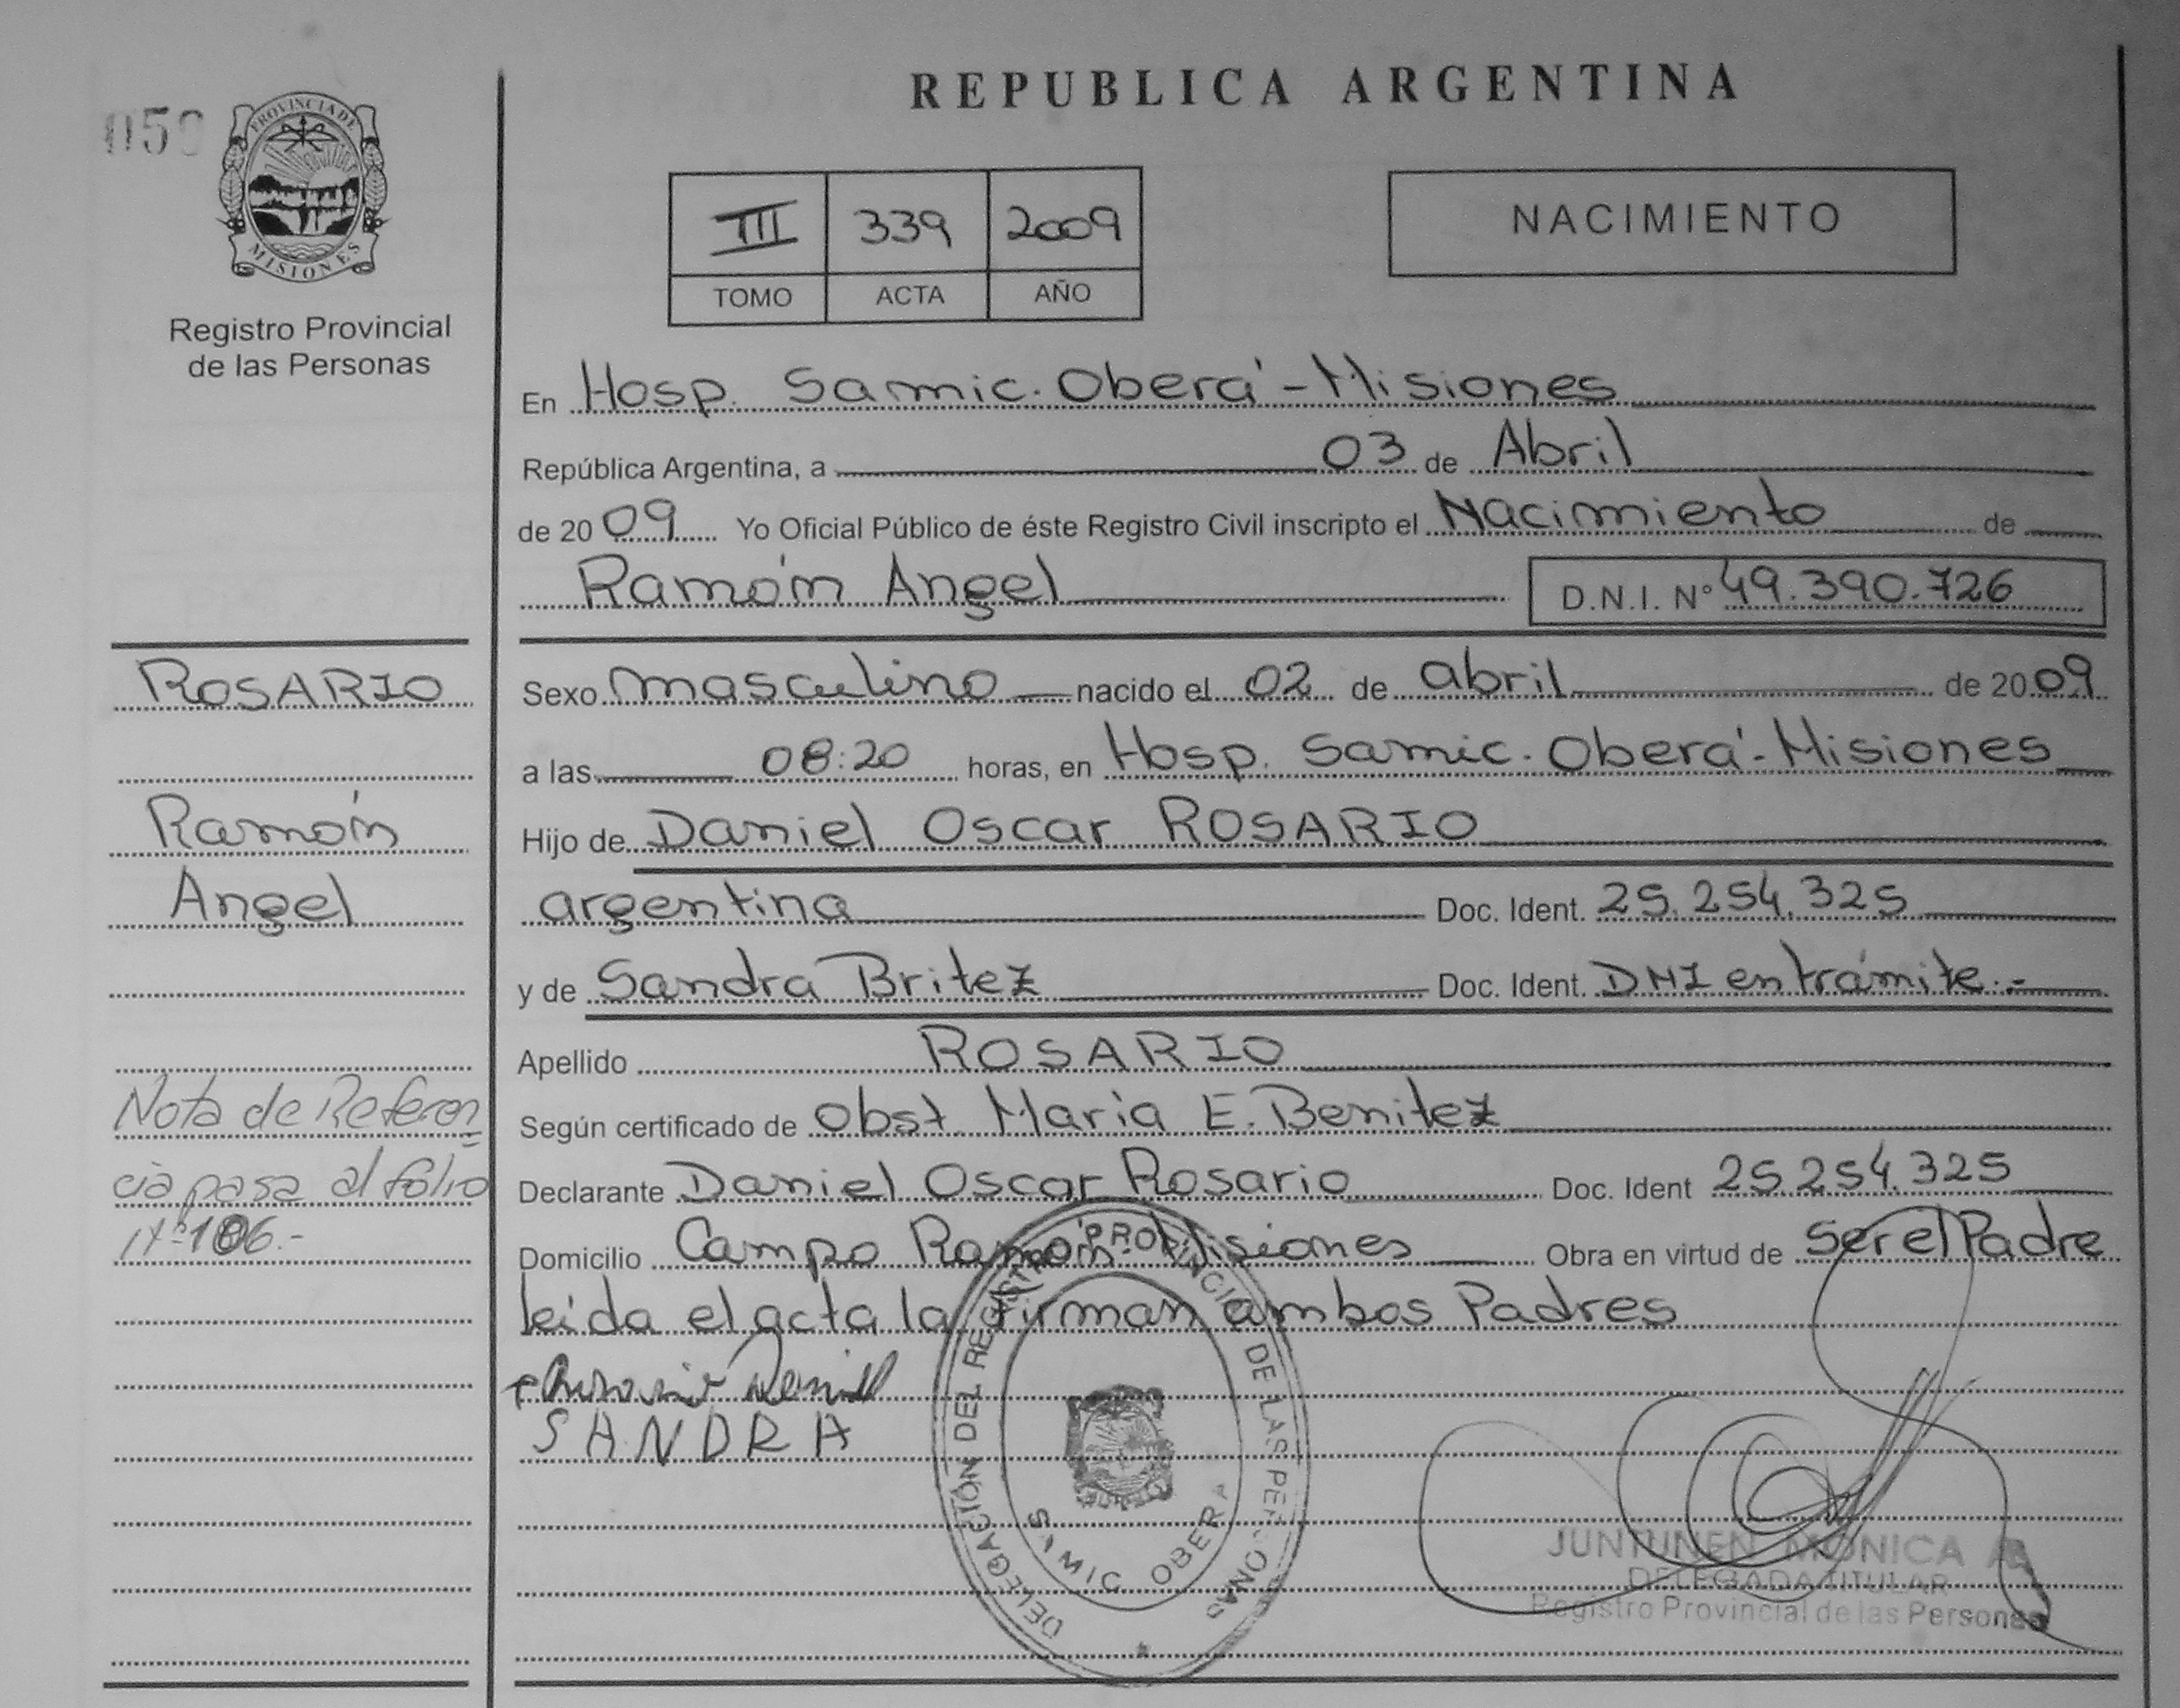 REPUBLICA ARGENTINA
PROVINCIA DE
MISIONES
Registro Provincial
de las Personas
III 339 2009
TOMO ACTA AÑO
NACIMIENTO
En Hosp. Samic. Oberá - Misiones
República Argentina, a 03 de Abril
de 2009 Yo Oficial Público de éste Registro Civil inscripto el Nacimiento de
Ramón Angel D.N.I. Nº 49.390.726
ROSARIO
Ramón
Angel
Nota de Referen
cia pasa al folio
Nº 106.-
Sexo masculino nacido el 02 de abril de 2009
a las 08:20 horas, en Hosp. Samic. Oberá - Misiones
Hijo de Daniel Oscar ROSARIO
argentina Doc. Ident. 25.254.325
y de Sandra Britez Doc. Ident. DNI en trámite.-
Apellido ROSARIO
Según certificado de Obst. Maria E. Benitez
Declarante Daniel Oscar Rosario Doc. Ident 25.254.325
Domicilio Campo Ramón - Misiones Obra en virtud de Ser el Padre
leida el acta la firman ambos Padres
SANDRA
DELEGACIÓN DEL REGISTRO PROVINCIAL DE LAS PERSONAS
SAMIC OBERA
JUNTUNEN MONICA
DELEGADA TITULAR
Registro Provincial de las Personas